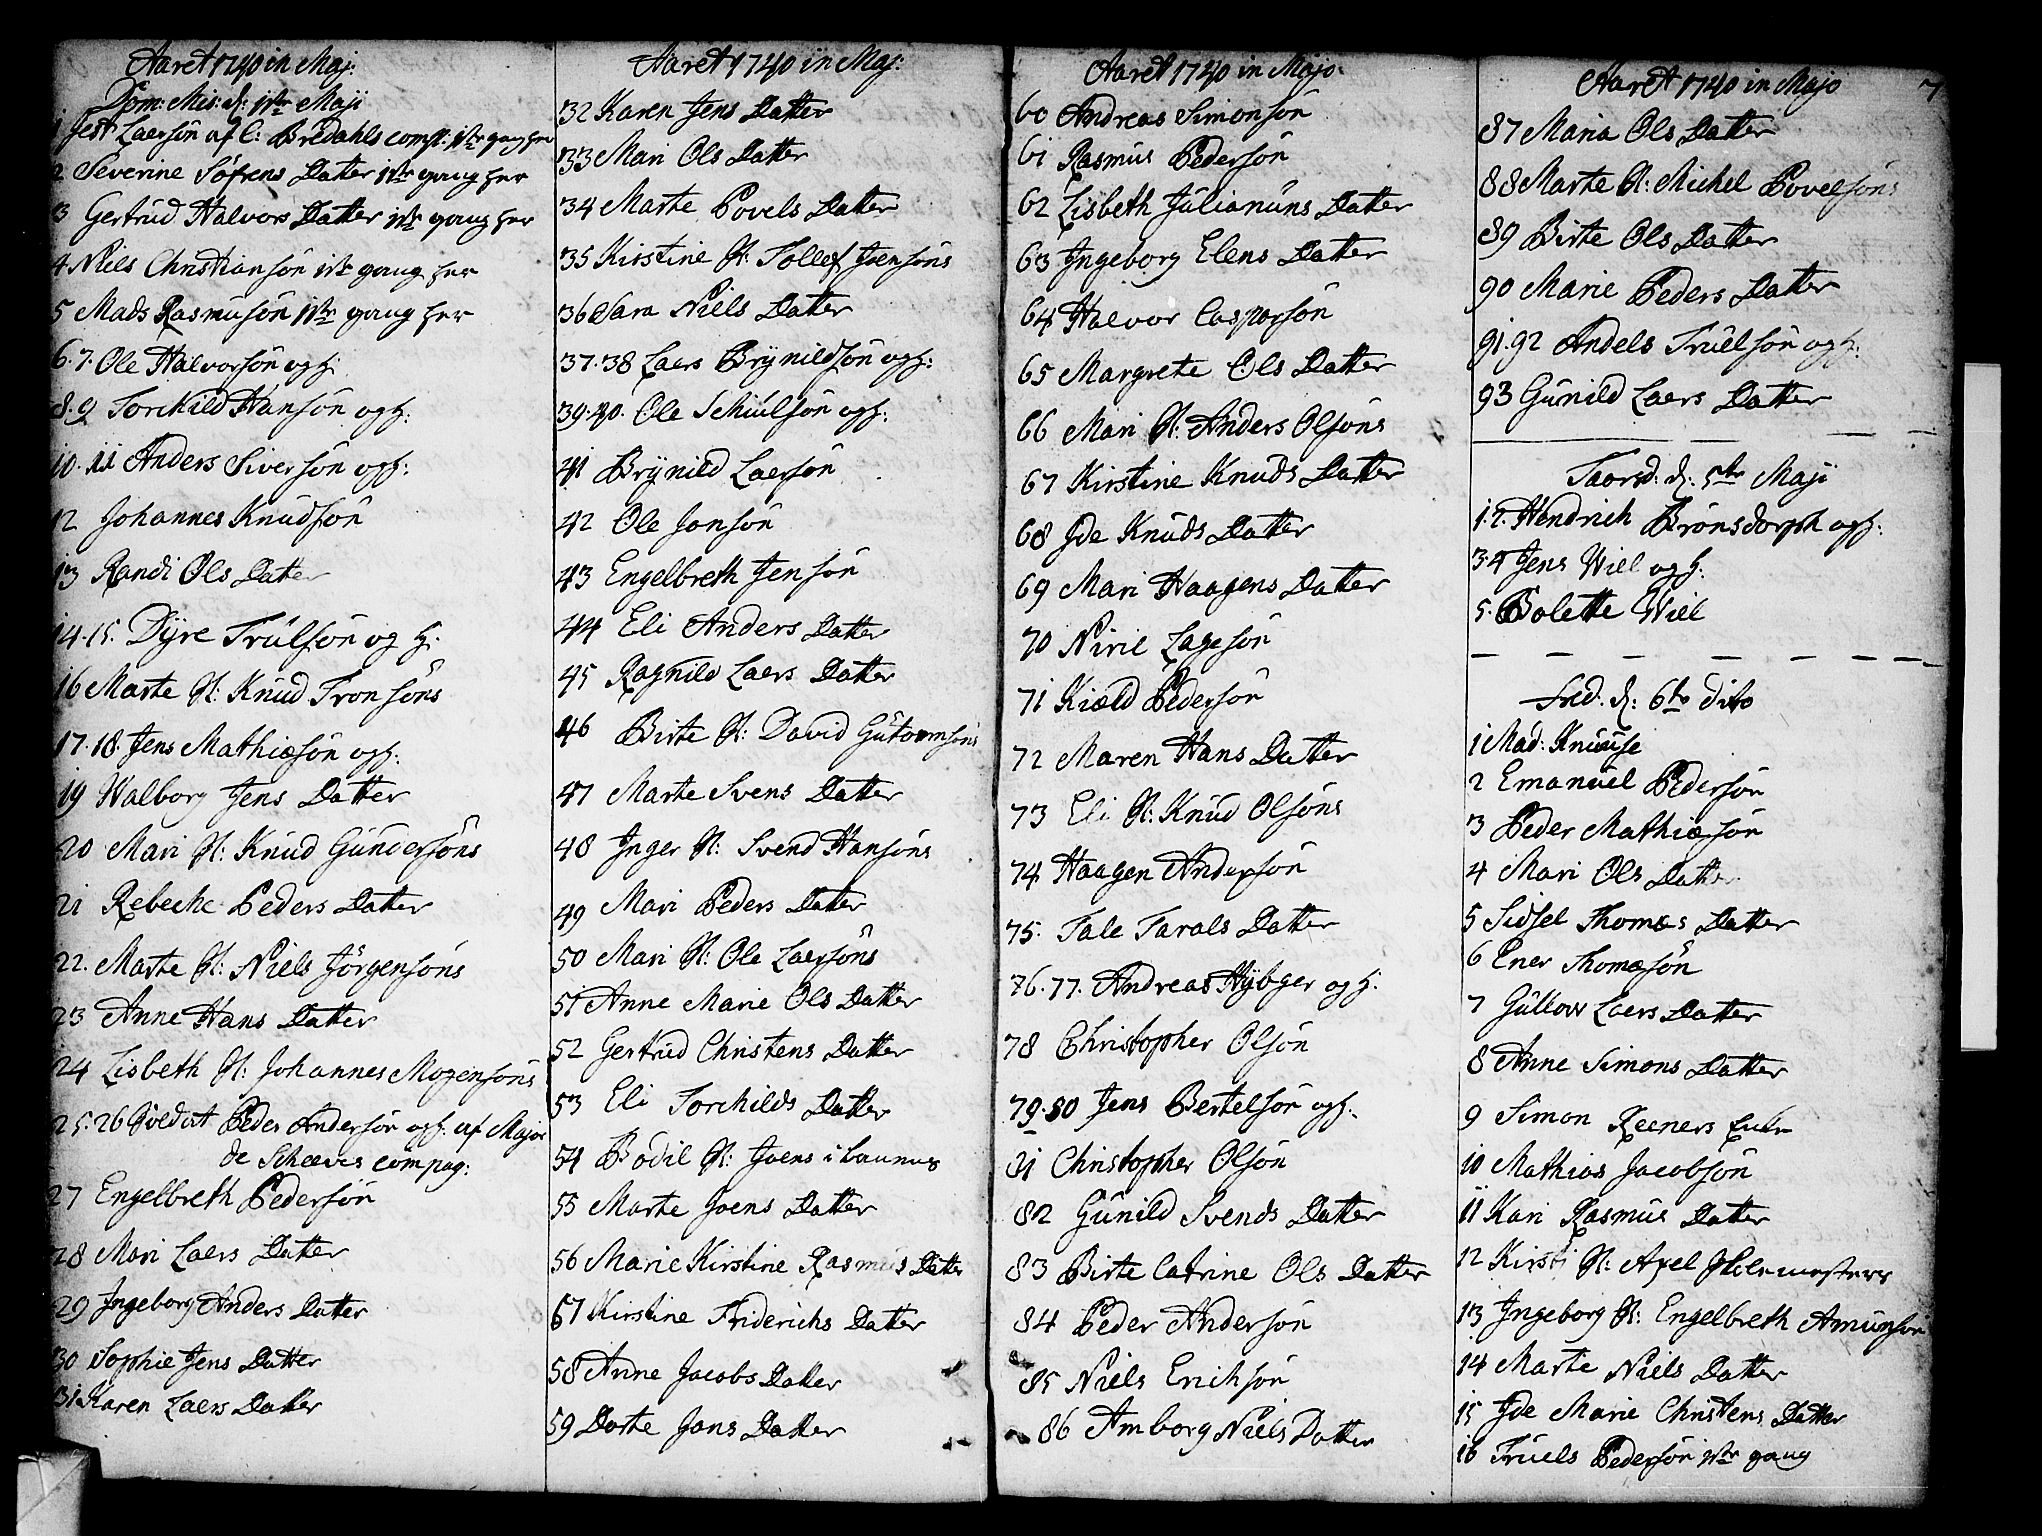 Aaret 1740 in Maj:
Dom: Mis: d: 1ste Maji
1 Jest Laersøn af C: Bredahls comp: 1ste gang her
2 Severine Søfrens Datter 1ste gang her
3 Gertrud Halvors Datter 1ste gang her
4 Niels Christiansøn 1ste gang her
5 Mads Rasmusøn 1ste gang her
6.7. Ole Halvorsøn og h:
8.9 Torckild Hansøn og h:
10.11 Anders Siversøn og h:
12 Johannes Knudsøn
13 Randi Ols Datter
14.15. Dÿre Trulsøn og h:
16 Marte N: Knud Tronsøns
17.18. Jens Mathiæsøn og h:
19 Walborg Jens Datter
20 Mari N: Knud Gundersøns
21 Rebeche Peders Datter
22. Marte N: Niels Jørgensøns
23 Anne Hans Datter
24 Lisbeth N: Johannes Mogensøns
25.26 Soldat Peder Andersøn og h: af Major
de Scheevis compag:
27 Engelbreth Pedersøn
28 Mari Laers Datter
29 Ingeborg Anders Datter
30 Sophie Jens Datter
31 Karen Laers Datter
Aaret 1740 in Maj:
32 Karen Jens Datter
33 Mari Ols Datter
34 Marte Povels Datter
35 Kirstine N: Tollef Joensøns
36 Sara Niels Datter
37.38 Laers Brÿnildsøn og h:
39.40. Ole Schiulsøn og h:
41 Brÿnild Laersøn
42 Ole Jonsøn
43 Engelbreth Jensøn
44 Eli Anders Datter
45 Ragnild Laers Datter
46 Birte N: David Gutormsøns
47 Marte Svens Datter
48 Inger N: Svend Hansøns
49 Mari Peders Datter
50 Mari N: Ole Laersøns
51 Anne Marie Ols Datter
52 Gertrud Christens Datter
53 Eli Torchilds Datter
54 Bodil N: Joens i
55 Marte Joens Datter
56 Marie Kirstine Rasmus Datter
57 Kirstine Friderichs Datter
58 Anne Jacobs Datter
59 Dorte Jons Datter
Aaret 1740 in Majo:
60 Andreas Simonsøn
61 Rasmus Pedersøn
62 Lisbeth Julianuns Datter
63 Ingeborg Elens Datter
64 Halvor Caspersøn
65 Margrete Ols Datter
66 Mari N: Anders Olsøns
67 Kirstine Knuds Datter
68 Ide Knuds Datter
69 Mari Haagens Datter
70 Niril Lagesøn
71 Kiæld Pedersøn
72 Maren Hans Datter
73 Eli N: Knud Olsøns
74 Haagen Andersøn
75. Tale Tarals Datter
76.77. Andreas Hÿbger og h:
78 Christopher Olsøn
79.80 Jens Bertelsøn og h:
81 Christopher Olsøn
82 Gunild Svends Datter
83 Birte Catrine Ols Datter
84 Peder Andersøn
85 Niels Erichsøn
86 Amborg Niels Datter
Aaret 1740 in Majo 7
87 Maria Ols Datter
88 Marte N: Michel Povelsøns
89 Birte Ols Datter
90 Marie Peders Datter
91.92 Andels Truelsøn og h:
93 Gunild Laers Datter
Taorsd: d: 5te Maji
1.2. Hendrich Brønsdorph og h:
3.4 Jens Wiel og h:
5. Bolette Wiel
Fred. d: 6te dito
1 Mad: Knuuse
2 Emanuel Pedersøn
3 Peder Mathiæsøn
4 Mari Ols Datter
5 Sidsel Thomæs Datter
6 Ener Thomæsøn
7 Gullow Laers Datter
8 Anne Simons Datter
9 Simon Reeners
10 Mathias Jacobsøn
11 Kari Rasmus Datter
12 Kirsti N: Axel
13 Ingeborg N: Engelbreth Amunsøn
14 Marte Niels Datter
15 Ide Marie Christens Datter
16 Truels Pedersøn 1ste gang